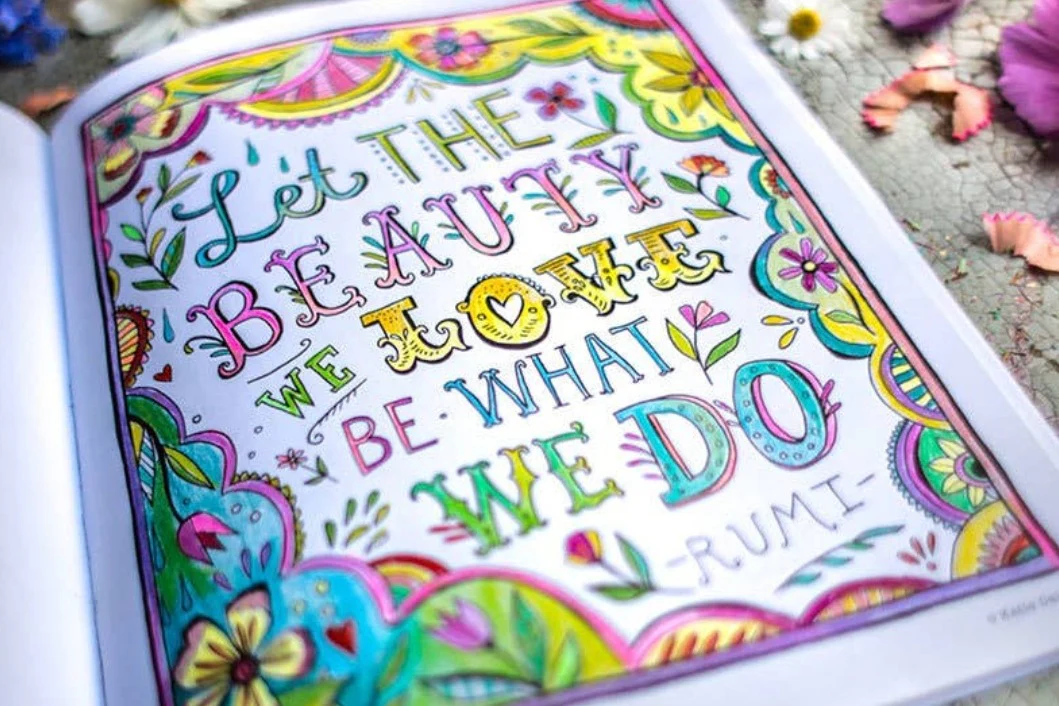 Let THE
BEAUTY
WE LOVE
BE WHAT
WE DO
-RUMI-
© Katie